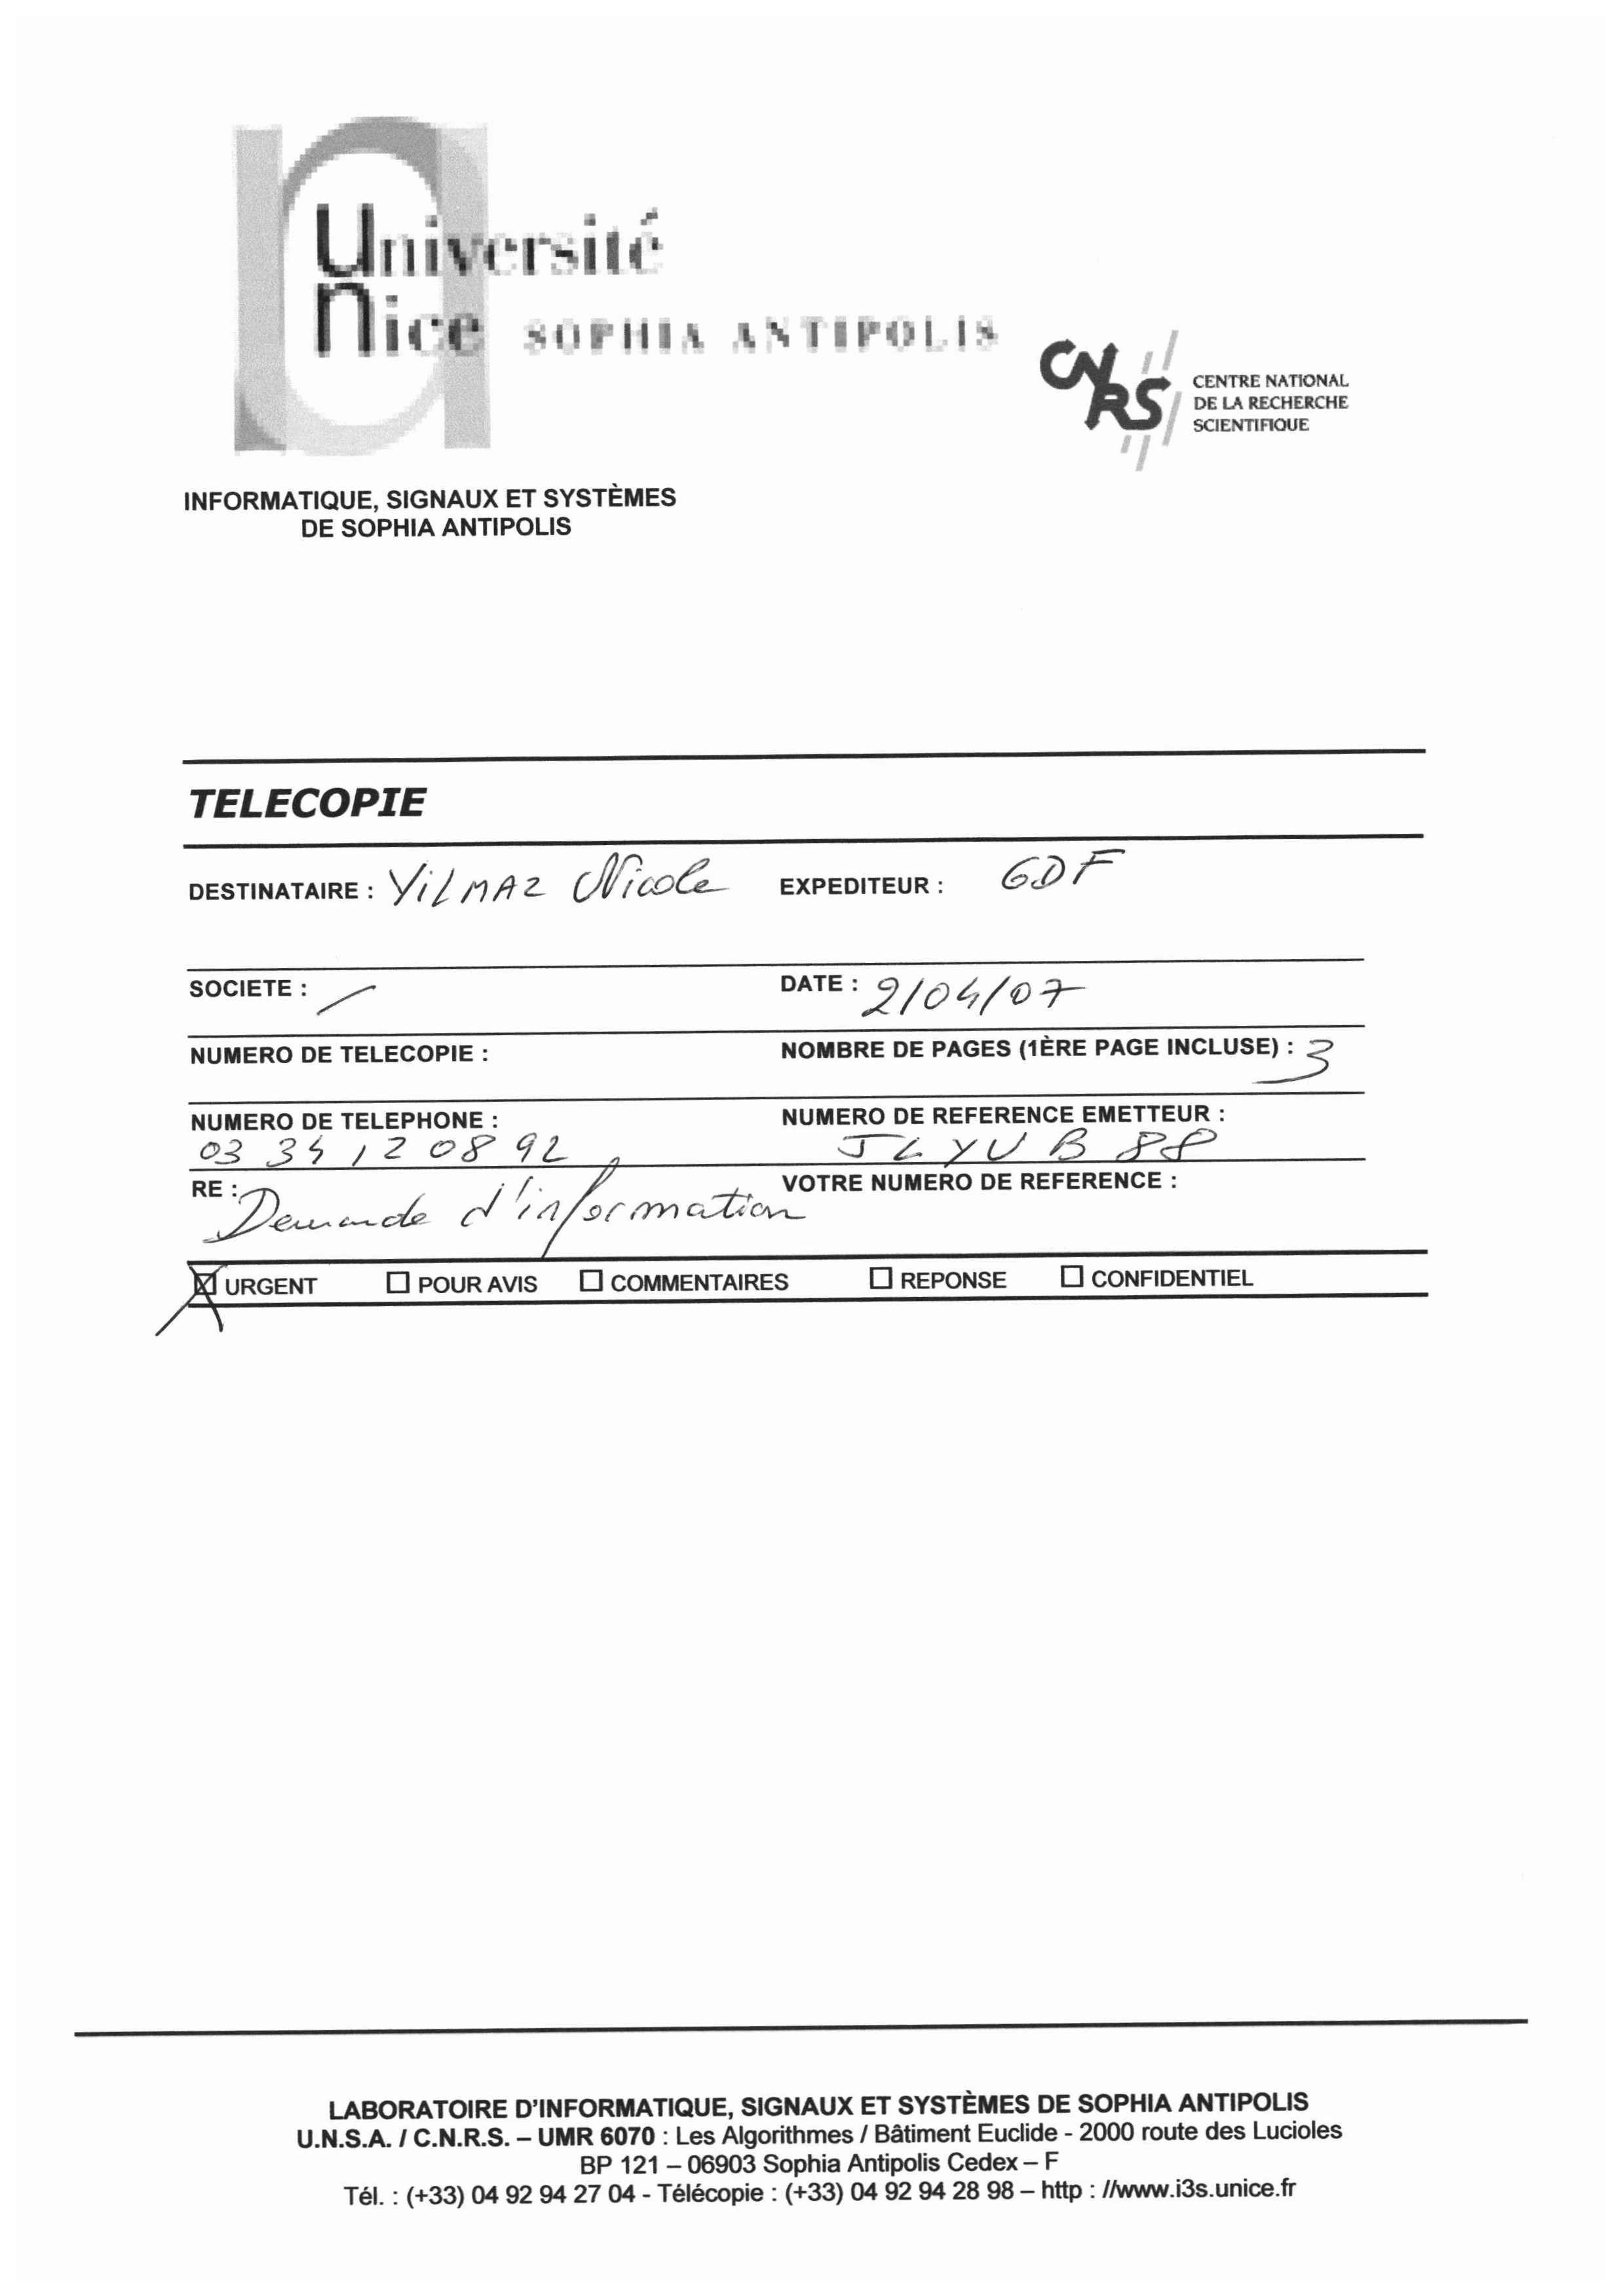 Université
Nice SOPHIA ANTIPOLIS
CNRS
CENTRE NATIONAL
DE LA RECHERCHE
SCIENTIFIQUE
INFORMATIQUE, SIGNAUX ET SYSTÈMES
DE SOPHIA ANTIPOLIS
TELECOPIE
DESTINATAIRE : YILMAZ Nicole EXPEDITEUR : GDF
SOCIETE : / DATE : 2/04/07
NUMERO DE TELECOPIE : NOMBRE DE PAGES (1ÈRE PAGE INCLUSE) : 3
NUMERO DE TELEPHONE : NUMERO DE REFERENCE EMETTEUR :
03 34 12 08 92 JLYUB88
RE : Demande d'information VOTRE NUMERO DE REFERENCE :
☒ URGENT ☐ POUR AVIS ☐ COMMENTAIRES ☐ REPONSE ☐ CONFIDENTIEL
LABORATOIRE D'INFORMATIQUE, SIGNAUX ET SYSTÈMES DE SOPHIA ANTIPOLIS
U.N.S.A. / C.N.R.S. – UMR 6070 : Les Algorithmes / Bâtiment Euclide - 2000 route des Lucioles
BP 121 – 06903 Sophia Antipolis Cedex – F
Tél. : (+33) 04 92 94 27 04 - Télécopie : (+33) 04 92 94 28 98 – http : //www.i3s.unice.fr